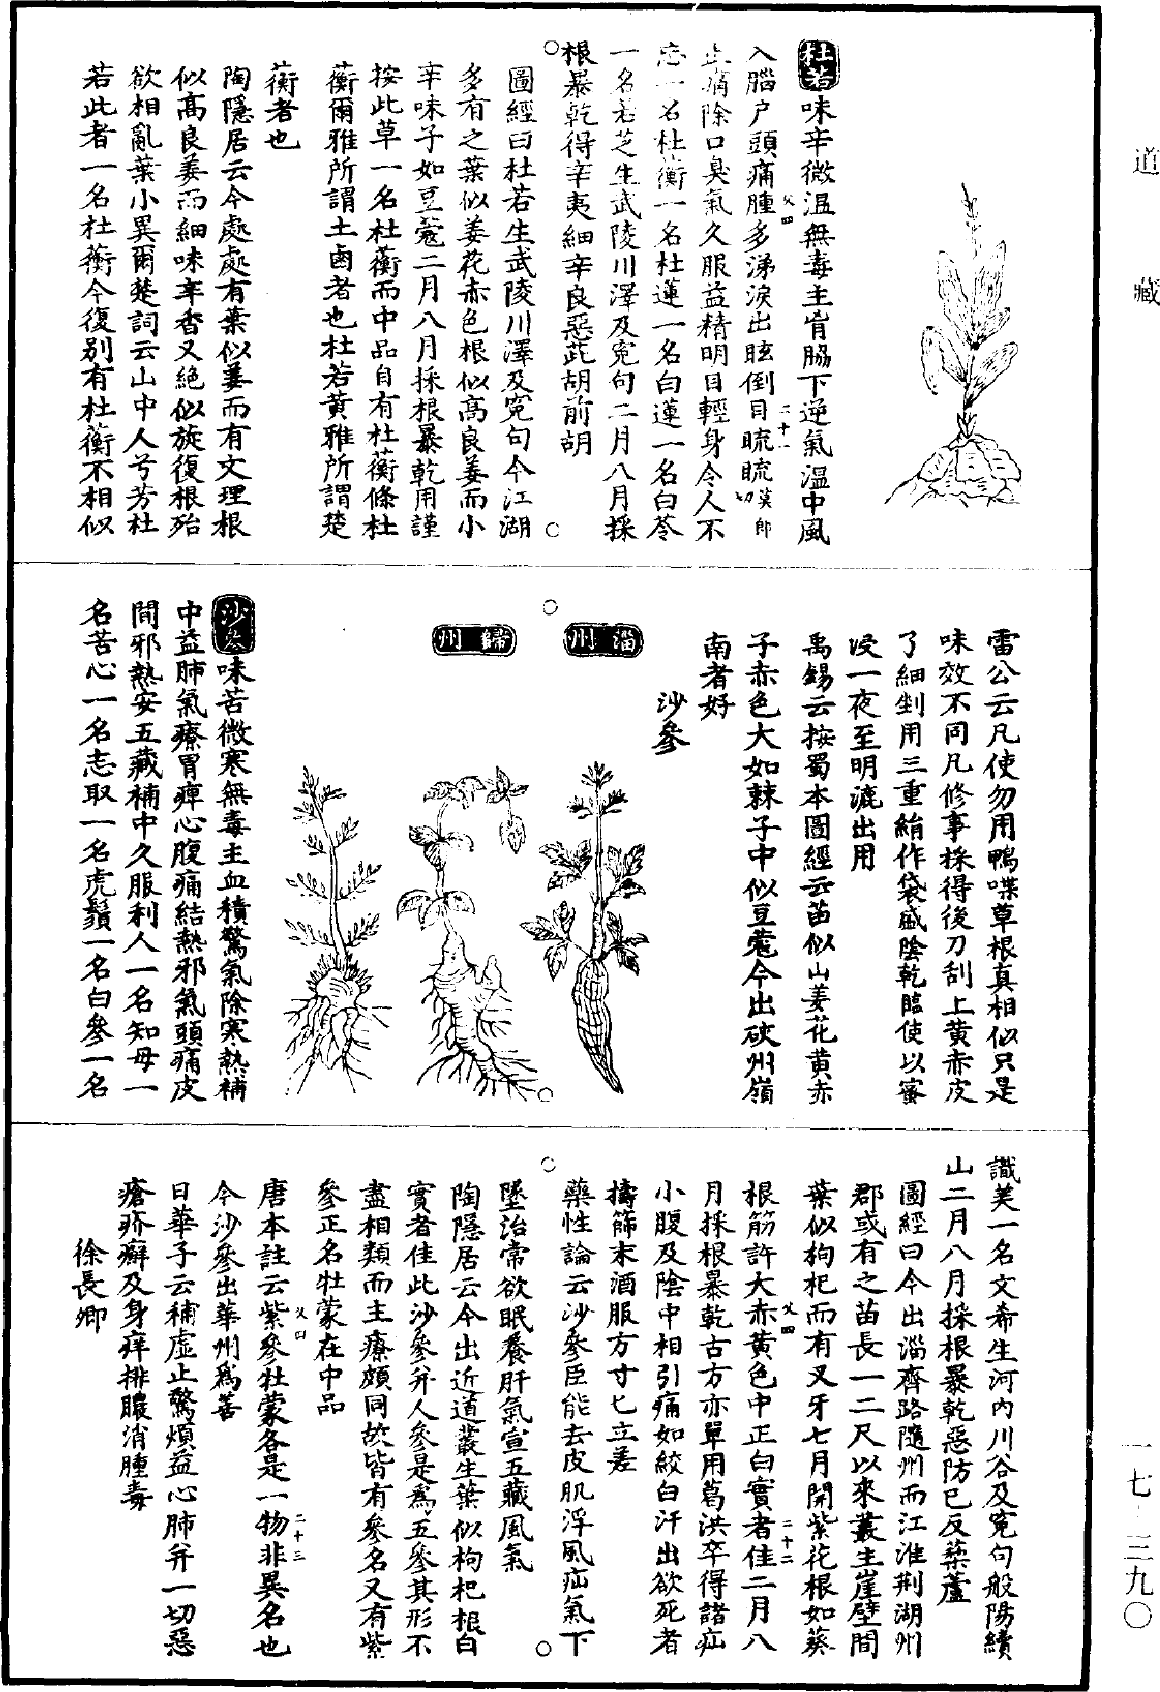 道藏
杜若味辛微温無毒主胷脇下逆氣温中風
入腦户頭痛腫多涕淚出眩倒目䀮䀮莫郎切
止痛除口臭氣久服益精明目輕身令人不
忘一名杜蘅一名杜蓮一名白蓮一名白苓
一名若芝生武陵川澤及寃句二月八月採
根暴乾得辛夷細辛良惡茈胡前胡
圖經曰杜若生武陵川澤及寃句今江湖
多有之葉似姜花赤色根似高良姜而小
辛味子如豆蔻二月八月採根暴乾用謹
按此草一名杜蘅而中品自有杜蘅條杜
蘅爾雅所謂土鹵者也杜若黄雅所謂楚
蘅者也
陶隱居云今處處有葉似姜而有文理根
似高良姜而細味辛香又絶似旋復根殆
欲相亂葉小異爾楚詞云山中人兮芳杜
若此者一名杜蘅今復别有杜蘅不相似
雷公云凡使勿用鴨喋草根真相似只是
味效不同凡修事採得後刀刮上黄赤皮
了細剉用三重絹作袋盛陰乾臨使以蜜
浸一夜至明漉出用
禹錫云按蜀本圖經云苗似山姜花黄赤
子赤色大如棘子中似豆蔻今出硤州嶺
南者好
沙參
淄州
歸州
沙參味苦微寒無毒主血積驚氣除寒熱補
中益肺氣療胃痺心腹痛結熱邪氣頭痛皮
間邪熱安五藏補中久服利人一名知母一
名苦心一名志取一名虎鬚一名白參一名
識美一名文希生河内川谷及寃句般陽續
山二月八月採根暴乾惡防已反藜蘆
圖經曰今出淄齊路隨州而江淮荆湖州
郡或有之苗長一二尺以來叢生崖壁間
葉似枸杞而有叉牙七月開紫花根如葵
根筋許大赤黄色中正白實者佳二月八
月採根暴乾古方亦單用葛洪卒得諸疝
小腹及陰中相引痛如絞白汗出欲死者
擣篩末酒服方寸匕立差
藥性論云沙參臣能去皮肌浮風疝氣下
墜治常欲眠養肝氣宣五藏風氣
陶隱居云今出近道叢生葉似枸杞根白
實者佳此沙參并人參是爲五參其形不
盡相類而主療頗同故皆有參名又有紫
參正名牡蒙在中品
唐本註云紫參牡蒙各是一物非異名也
今沙參出華州爲善
日華子云補虛止驚煩益心肺并一切惡
瘡疥癬及身痒排膿消腫毒
徐長卿
父四
二十一
父四
二十二
父四
二十三
一七-三九〇